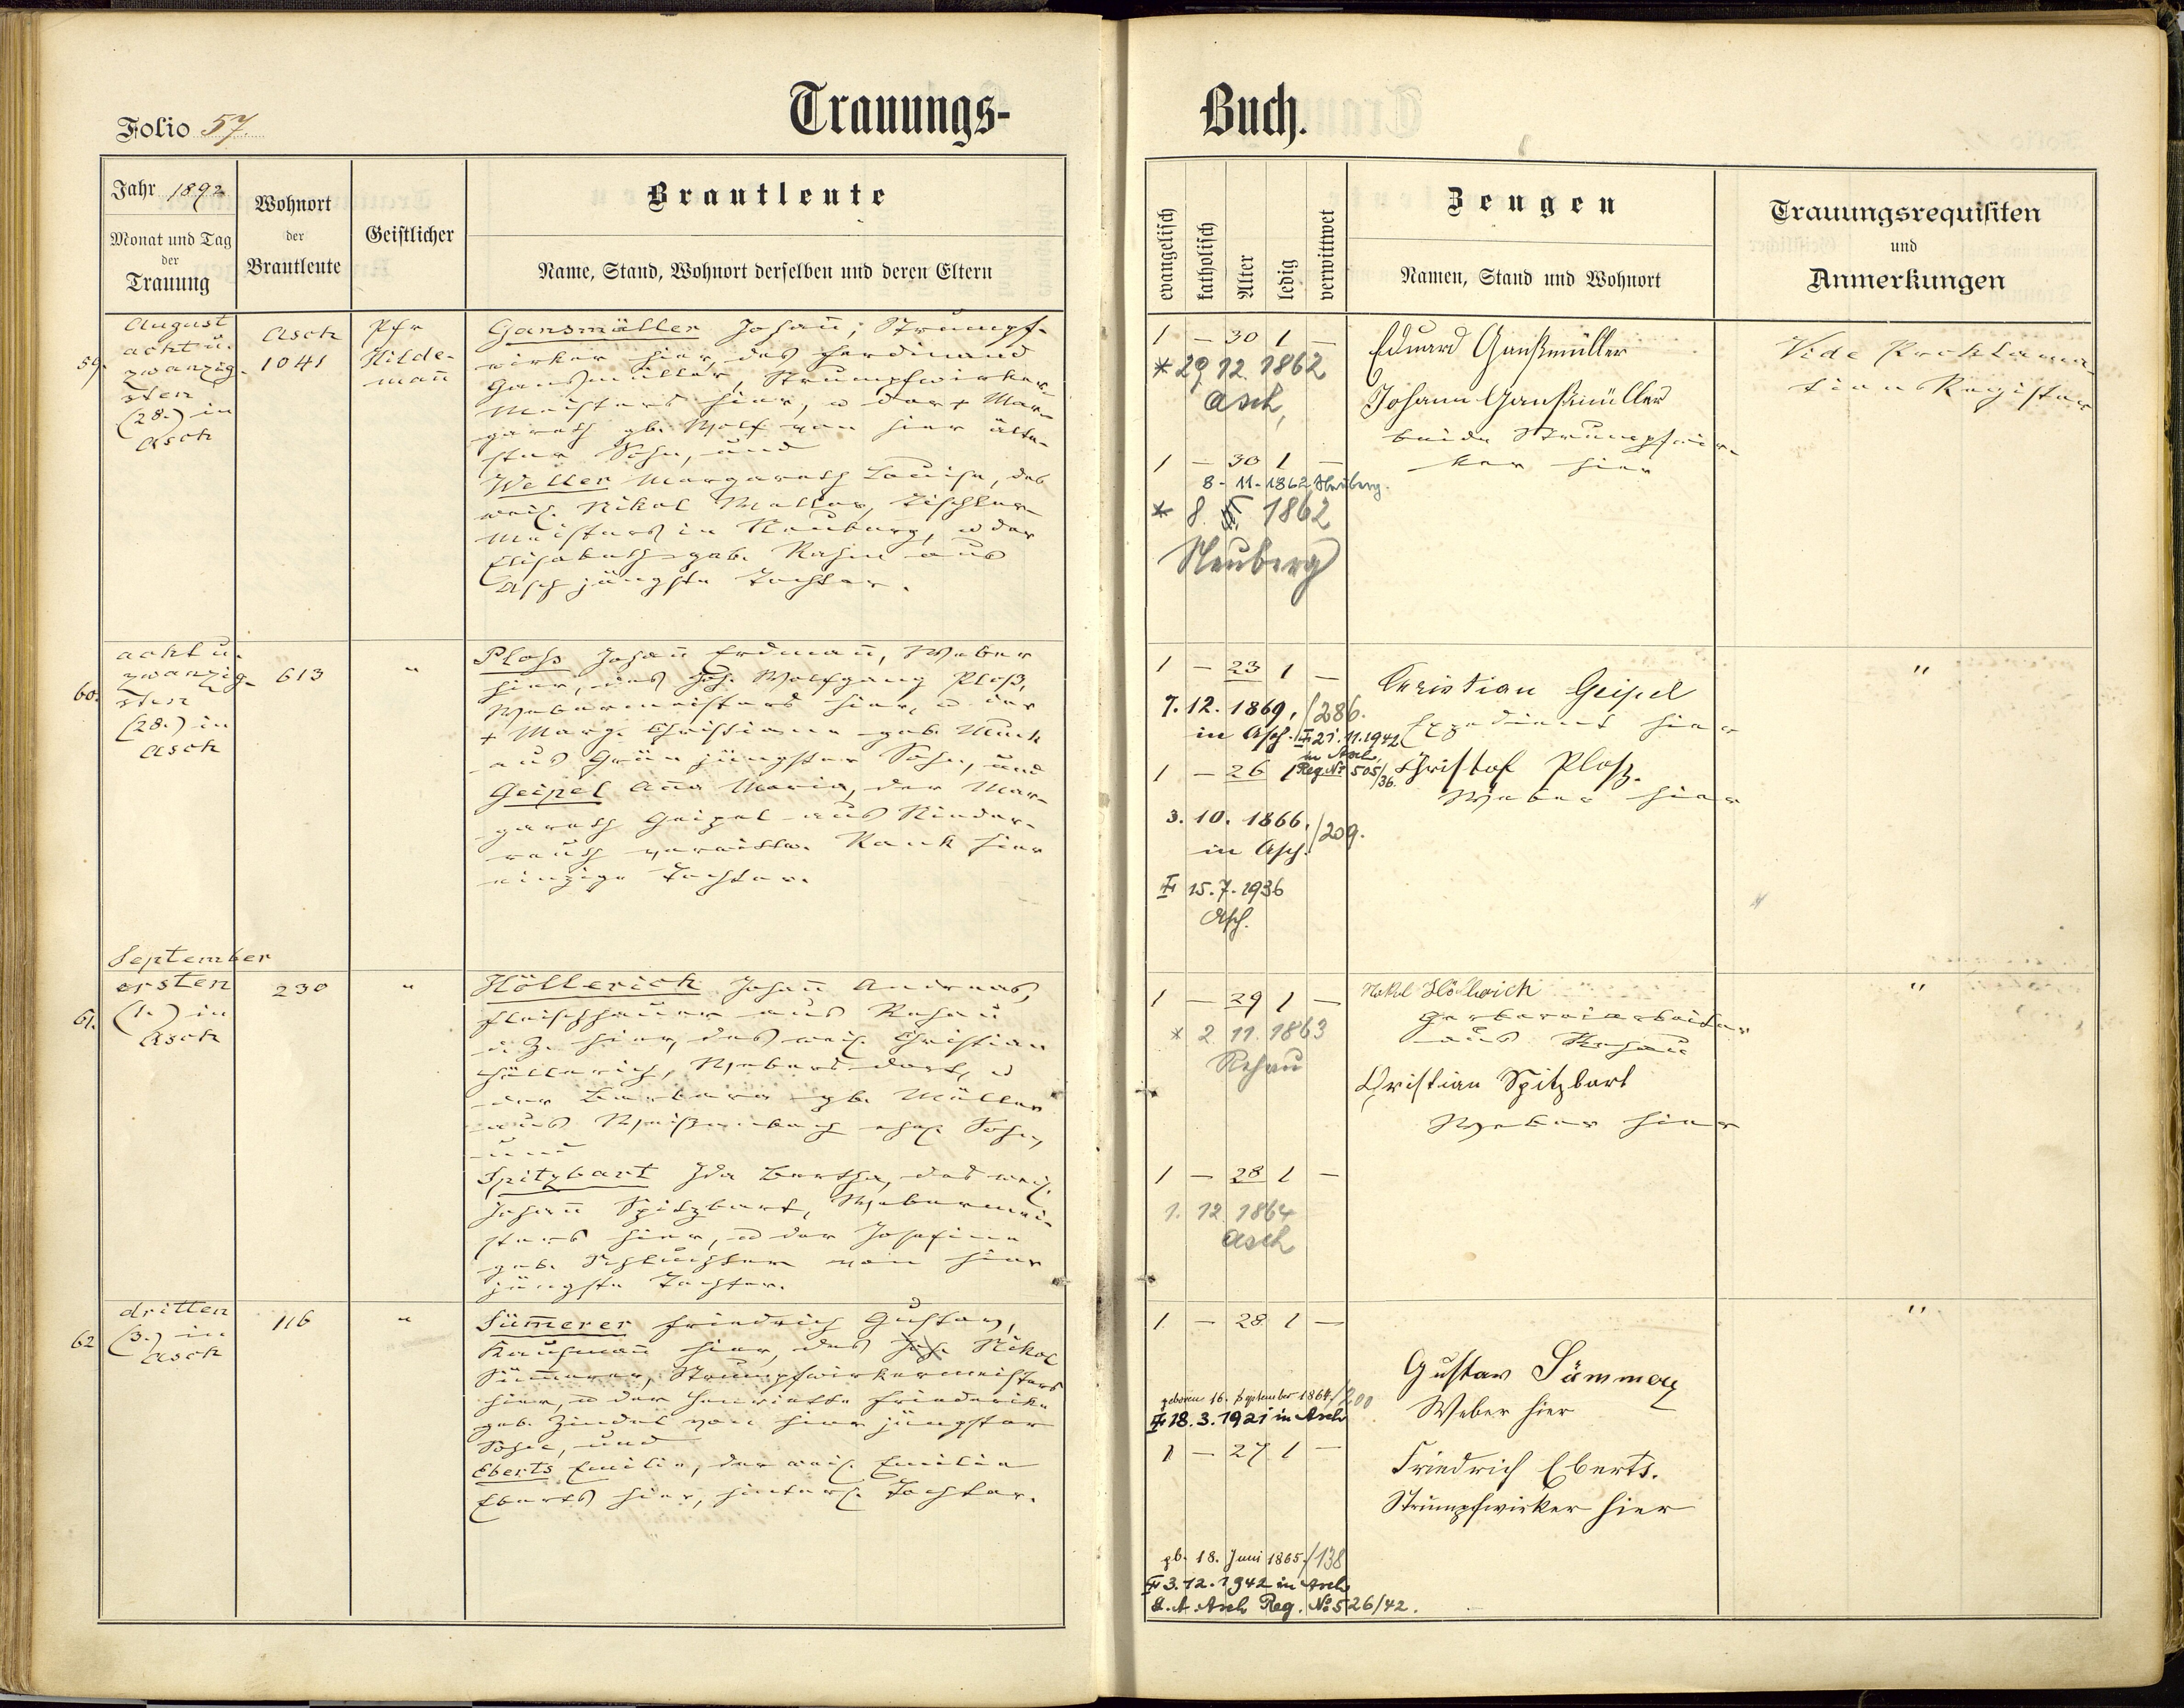 Folio 57.
Trauungs-
Buch.
Jahr 1892
Monat und Tag
der
Trauung
Wohnort
der
Brautleute
Geistlicher
Brautleute
Name, Stand, Wohnort derselben und deren Eltern
evangelisch
katholisch
Alter
ledig
verwittwet
Zeugen
Namen, Stand und Wohnort
Trauungsrequisiten
und
Anmerkungen
59.
August
acht u.
zwanzig-
sten
(28.) in
Asch
Asch
1041
Pfr
Hilde-
mañ
Gansmüller Johañ, Strumpf-
wirker hier, des Ferdinand
Gansmüller, Strumpfwirker-
Meisters hier, u der + Mar-
gareth gb. Wolf von hier älte-
ster Sohn, und
Weller Margareth Louise, des
weil. Nikol Weller, Tischler-
Meisters in Neuberg, u der
Elisabeth geb. Rahm aus
Asch jüngste Tochter.
1 — 30 1 —
* 29 12. 1862
Asch,
1 — 30 1 —
8 - 11 - 1862, Neuberg.
* 8. XI 1862
Neuberg
Eduard Ganßmüller
Johann Ganßmüller
beide Strumpfwir-
ker hier
Vide Proklama-
tions Register
60.
acht u.
zwanzig-
sten
(28.) in
Asch
613
"
Ploß Johañ Erdmañ, Weber
hier, des Joh. Wolfgang Ploß,
Webermeisters hier, u der
+ Marg. Christiane geb. Münch
aus Grün jüngster Sohn, und
Geipel Aña Maria, der Mar-
gareth Geipel aus Nieder-
reuth verwittw. Rank hier
einzige Tochter.
1 — 23 1 —
7. 12. 1869, /286.
in Asch. 21.11.1942
in Asch,
Reg. № 505/
1 — 26 1
36.
3. 10. 1866, /209.
in Asch.
15. 7. 1936
Asch.
Christian Geipel
Expedient hier
Christof Ploß.
Weber hier
"
September
61.
ersten
(1.) in
Asch
230
"
Höllerich Johañ Andreas,
Fleischhauer aus Rehau
d. Z. hier, des weil. Christian
Höllerich, Webers dort, u
der Barbara gb. Müller
aus Weißenbach ehel. Sohn,
und
Spitzbart Ida Bertha, des weil.
Johañ Spitzbart, Webermei-
sters hier, u der Josefine
geb. Schleichter von hier
jüngste Tochter.
1 — 29 1 —
* 2. 11. 1863
Rehau
1 — 28 1 —
1. 12. 1864
Asch
Nikol Höllerich
Gerbereiarbeiter
aus Rehau
Christian Spitzbart
Weber hier
"
62
dritten
(3.) in
Asch
116
"
Sümerer Friedrich Gustav,
Kaufmañ hier, des Joh. Nikol
Sümerer, Strumpfwirkermeisters
hier, u der Henriette Friederike
geb. Zindel von hier jüngster
Sohn, und
Eberts Emilie, der weil. Emilie
Eberts hier, hinterl. Tochter.
1 — 28 1 —
geboren 16. September 1864. /200
18. 3. 1921 in Asch
1 — 27 1 —
gb. 18. Juni 1865. /138
3. 12. 1942 in Asch
S. A. Asch Reg. № 526/42.
Gustav Sümmerer
Weber hier
Friedrich Eberts.
Strumpfwirker hier
"